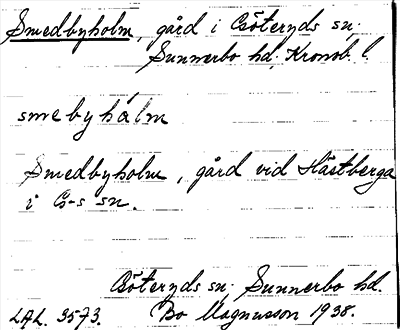 Smedbyholm, gård i Göteryds sn.
Sunnerbo hd, Kronob. l.
smebyhålm
Smedbyholm, gård vid Hästberga
i G-s sn.
Göteryds sn. Sunnerbo hd.
LAL. 3573. Bo Magnusson 1938.